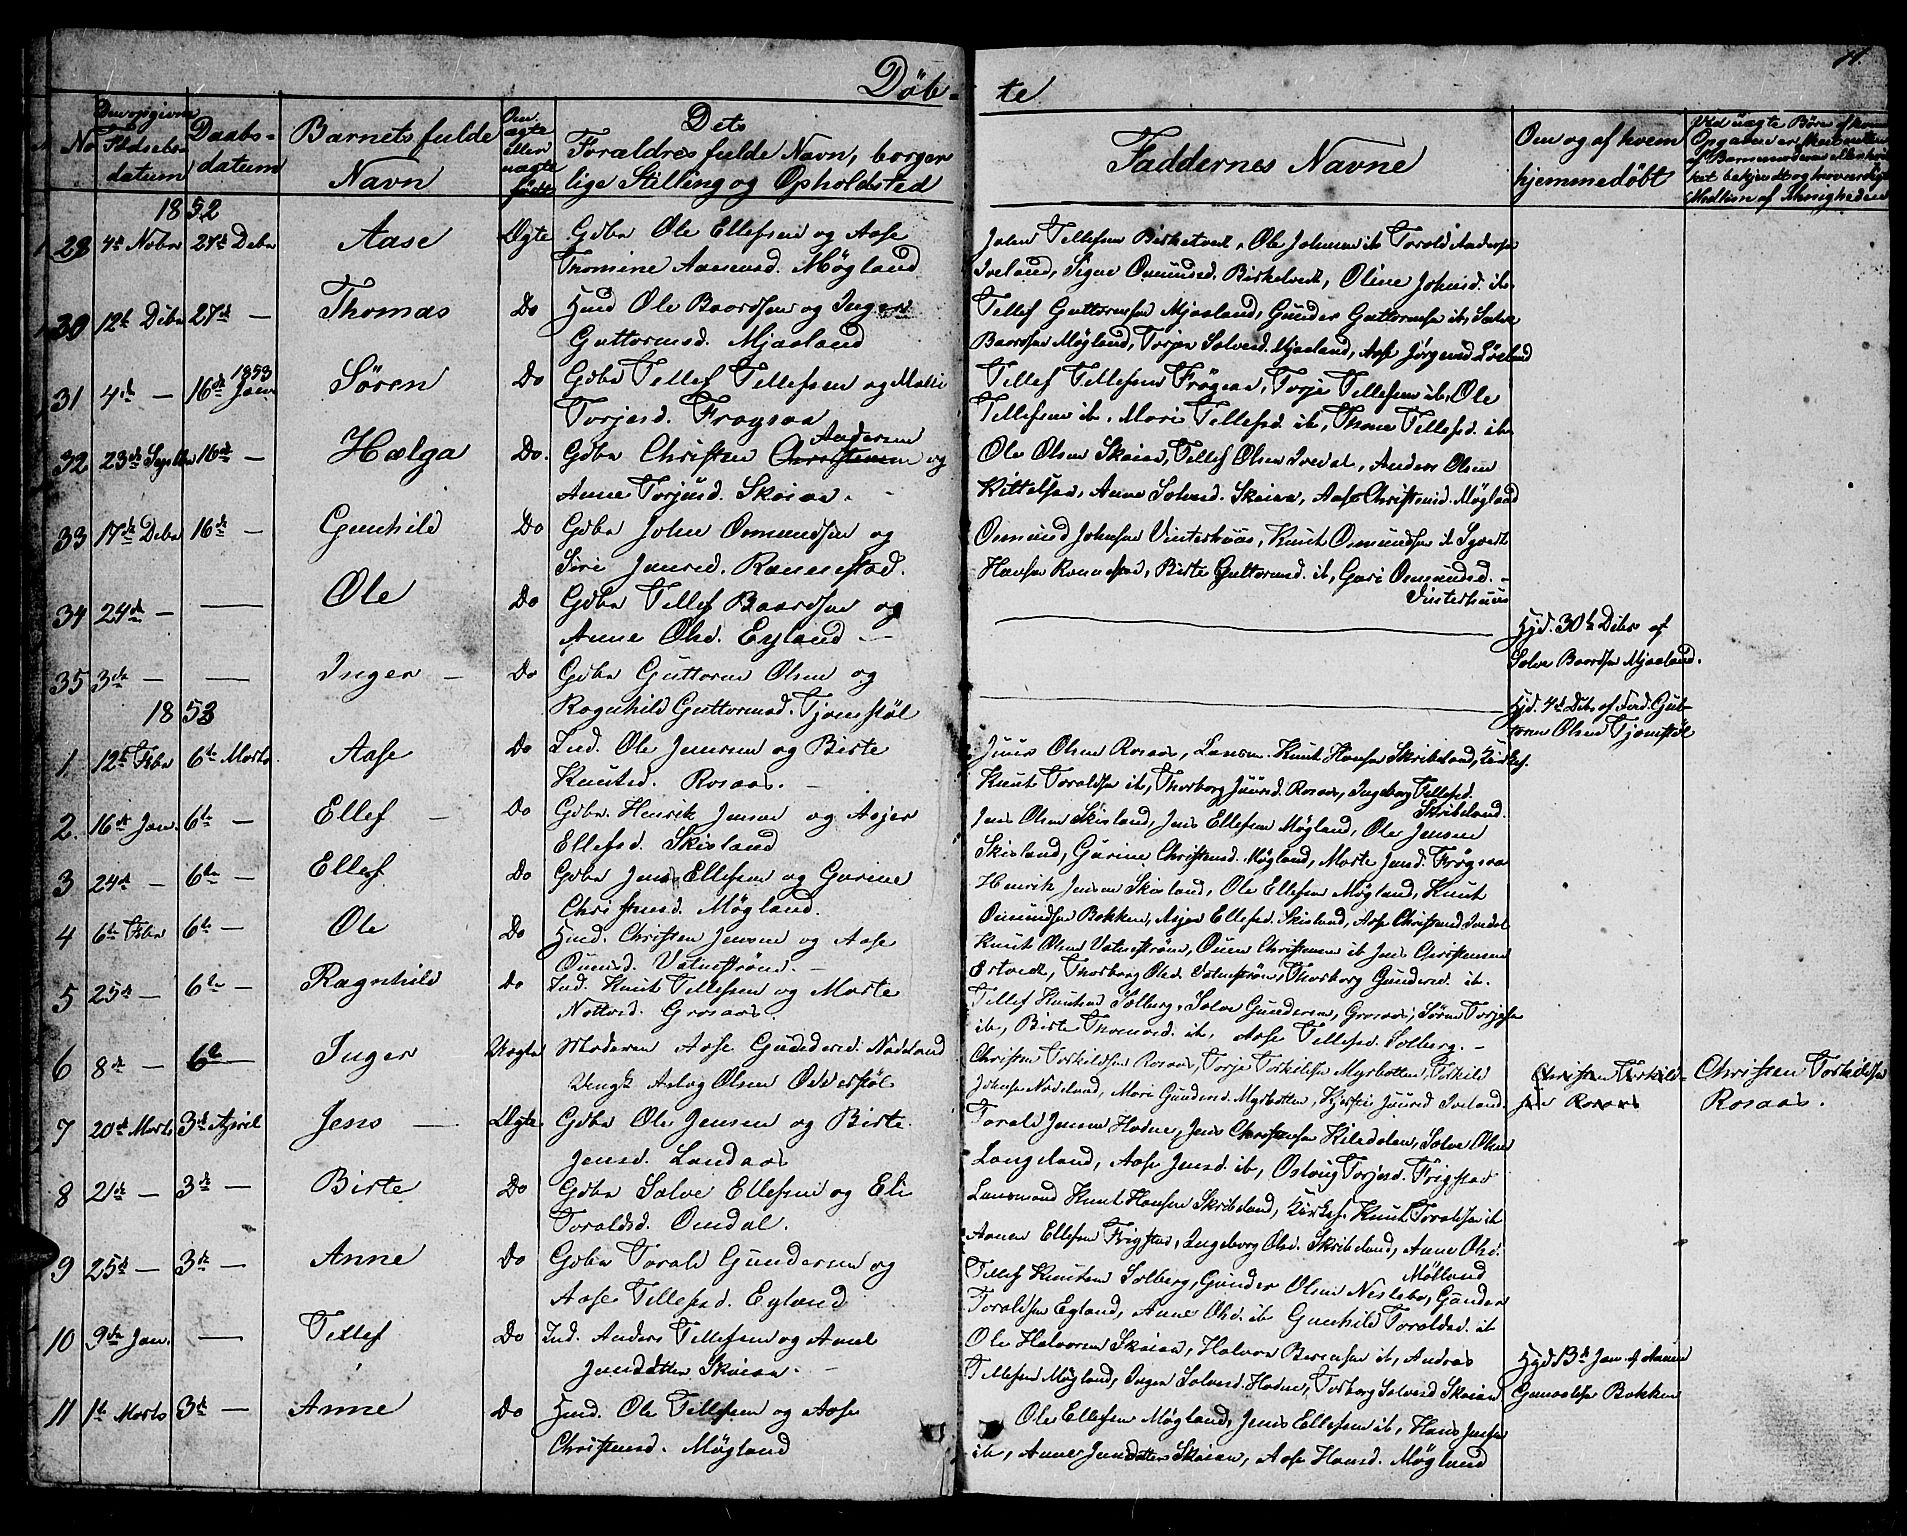 Døb-
te
11.
No
Den opgivne Fødselsdatum
Daabs-
datum
Barnets fulde
Navn
Om ægte eller uægte født
Dets
Forældres fulde Navn, borger
lige Stilling og Opholdsted
Faddernes Navne
Om og af hvem
hjemmedøbt
Ved uægte Børn af hvem
1852
29 4de Nobr 27de Debr Aase Ægte Gdbr Ole Ellefsen og Aase
Thomine Aanensd. Møgland
John Tellefsen Birketvedt, Ole Johnsen ib Torald Anders
Iveland, Signe Omundsd. Birkelvedt, Oline Johnsd. ib.
30 12te Debr 27de — Thomas Do Hmd Ole Baardsen og Inger
Guttormsd. Mjaaland
Tellef Guttormsen Mjaaland, Gunder Guttormsen ib, Salve
Baardsen Møgland, Torjer Solvesd. Mjaaland, Aase Jørgensd
31 4de — 16de 1853 Janr Søren Do Gdbr Tellef Tellefsen og Mari
Torjesd. Frøysaa
Tellef Tellefsen Frøysaa, Torje Tellefsen ib, Ole
Tellefsen ib, Mari Tellefsd. ib, Thone Tellefsd. ib
32 23de Septbr 16de — Hælga Do. Gdbr Christen Andersen og
Anne Torjusd. Skaiaa.
Ole Olsen Skaiaa, Tellef Olsen Ivedal, Anders Olsen
Kittelsaa, Anne Solvesd. Skaiaa, Aase Christensd. Møgland
33 17de Debr 16de — Gunhild Do Gdbr John Omundsen og
Siri Jansd. Rannestad.
Omund Johnsen Vinterhuus, Knut Omundsen ib
Hansen Rannestad, Birte Guttormsd. ib, Guri Omundsd. -
Vinterhuus
34 24de — — Ole Do Gdbr Tellef Baardsen og
Anne Olsd. Eyland —
Hjd. 30te Debr af
Salve Baardsen Mjaaland.
35 3de — — Inger — Do Gdbr Guttorm Olsen og
Ragnhild Guttormsd. Tjomstøl
Hjd. 4de Debr af Fad. Gut-
torm Olsen Tjomstøl
1853
1 12te Febr 6te Marts Aase Do Ind. Ole Jensen og Birte
Knutsd. Rosaas. -
Juus Olsen Rosaas, Lænsm. Knut Hansen Skribeland, Kirkes.
Knut Toraldsen ib, Thorborg Juusd. Rosaas, Ingeborg Tellefsd.
Skribeland.
2. 16de Jan. 6te — Ellef — Do Gdbr. Henrik Jensen og Asjer
Ellefsd. Skisland
Jens Olsen Skisland, Jens Ellefsen Møgland, Ole Jensen
Skisland, Gurine Christensd. Møgland, Marte Jensd. Frøysaa
3 24de — 6te — Ellef Do Gdbr Jens Ellefsen og Gurine
Christensd. Møgland.
Henrik Jensen Skisland, Ole Ellefsen Møgland, Knut
Omundsen Bakken, Asjer Ellefsd. Skisland, Aase Christensd Ivedal
4 6te Febr 6te — Ole Do Hmd. Christen Jensen og Aase
Oumsd. Vatnestrøm. -
Knut Olsen Vatnestrøm, Oum Christensen ib Jens Christensen
Estvedt, Thorborg Olsd. Vatnestrøm, Thorborg Gundersd. ib.
5 25de — 6te — Ragnhild Do Ind. Knut Tellefsen og Marte
Grosaas.
Tellef Knutsen Solberg, Salve Gundersen, Grosaas, Søren Torjesen
ib, Birte Thomasd. ib, Aase Tellefsd. Solberg. -
6 8de — 6te Inger Uægte Moderen Aase Gundersd. Nadeland
Ungk. Aslag Olsen
Christen Torkildsen Rosaas, Torje Torkildsen Myrbotten, Terkild
Johnsen Nadeland, Mari Gundersd. Myrbotten, Kjersti Juusd Iveland.
Christen Torkild-
sen Rosaas
Christen Torkildsen
Rosaas.
7 20de Marts 3de April Jens — Ægte. Gdbr Ole Jensen og Birte
Jensd. Landaas
Torald Jensen Hodne, Jens Christensen Kiledalen, Salve Olsen
Langeland, Aase Jensd. ib, Oslaug Torjesd. Frigstad
8 21de — 3de — Birte Do Gdbr Salve Ellefsen og Eli
Toraldsd. Omdal.
Lænsmand Knut Hansen Skribeland, Kirkes. Knut Toraldsen ib
Aanen Ellefsen Frigstad, Ingeborg Olsd. Skribeland, Anne Olsd.
Mølland
9 25de — 3de — Anne Do Gdbr Torald Gundersen og
Aase Tellefsd. Eyland
Tellef Knutsen Solberg, Gunder Olsen Neslebo, Gunder
Toraldsen Eyland, Anne Olsd. ib Gunhild Toraldsd. ib
10 9de Jan. — Tellef Do Ind. Anders Tellefsen og Anne
Jensdatter Skaiaa. -
Ole Halvorsen Skaiaa, Halvor Berensen ib, Andreas
Tellefsen Møgland, Inger Solvesd. Hodne, Torborg Solvesd Skaiaa
Hjd 13de Jan. af Aanen
Bakken
11 1te Marts 3de — Anne Do Hmd. Ole Tellefsen og Aase
Christensd. Møgland
Ole Ellefsen Møgland, Jens Ellefsen ib, Hans Jensen
ib, Anne Jensdatter Skaiaa, Aase Hansd. Møgland